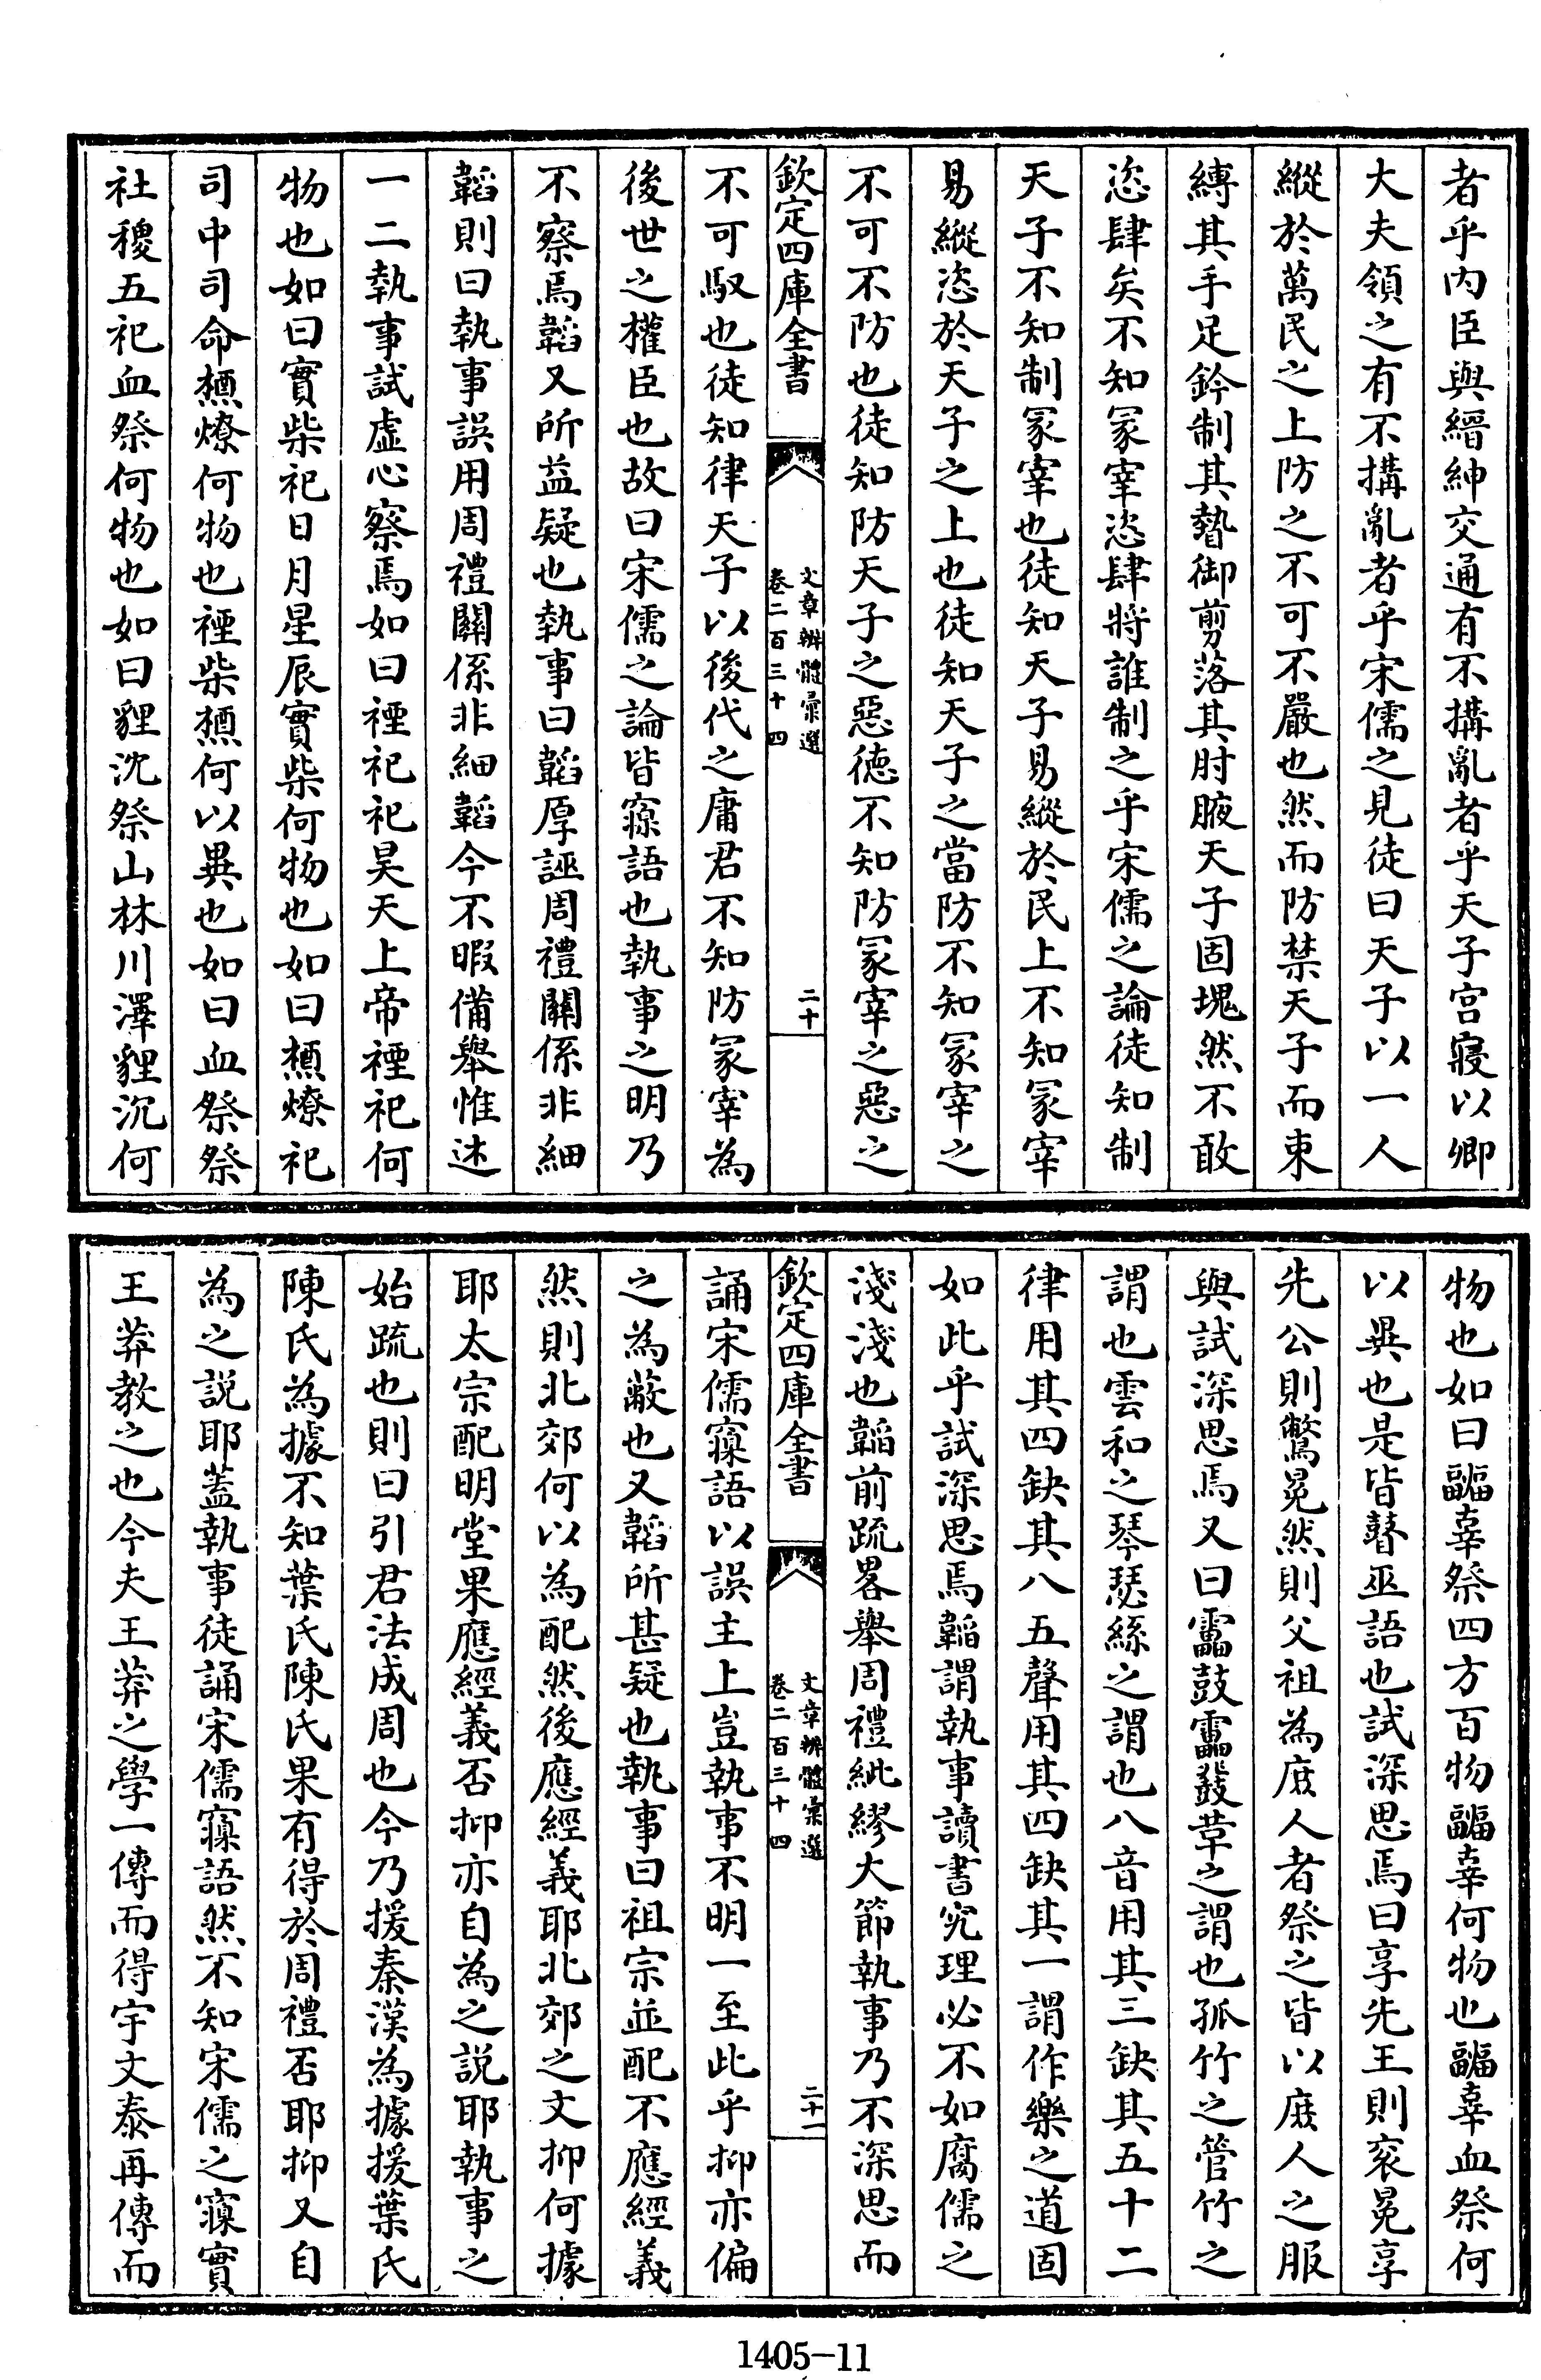 者乎内臣與縉紳交通有不搆亂者乎天子宫寢以卿
大夫領之有不搆亂者乎宋儒之見徒曰天子以一人
縱於萬民之上防之不可不嚴也然而防禁天子而束
縛其手足鈐制其贄御剪落其肘腋天子固塊然不敢
恣肆矣不知冢宰恣肆將誰制之乎宋儒之論徒知制
天子不知制冢宰也徒知天子易縱於民上不知冢宰
易縱恣於天子之上也徒知天子之當防不知冢宰之
不可不防也徒知防天子之惡德不知防冢宰之惡之
欽定四庫全書
文章辨體彙選
卷二百三十四
二十
不可馭也徒知律天子以後代之庸君不知防冢宰為
後世之權臣也故曰宋儒之論皆寱語也執事之明乃
不察焉韜又所益疑也執事曰韜厚誣周禮關係非細
韜則曰執事誤用周禮關係非細韜今不暇備舉惟述
一二執事試虛心察焉如曰禋祀祀昊天上帝禋祀何
物也如曰實柴祀日月星辰實柴何物也如曰槱燎祀
司中司命槱燎何物也禋柴槱何以異也如曰血祭祭
社稷五祀血祭何物也如曰貍沈祭山林川澤貍沉何
物也如曰疈辜祭四方百物疈辜何物也疈辜血祭何
以異也是皆瞽巫語也試深思焉曰享先王則衮冕享
先公則驚冕然則父祖為庶人者祭之皆以庶人之服
與試深思焉又曰靁鼓靁鼗革之謂也孤竹之管竹之
謂也雲和之琴瑟絲之謂也八音用其三缺其五十二
律用其四缺其八五聲用其四缺其一謂作樂之道固
如此乎試深思焉韜謂執事讀書究理必不如腐儒之
淺淺也韜前疏畧舉周禮紕繆大節執事乃不深思而
欽定四庫全書
文章辨體彙選
卷二百三十四
二十一
誦宋儒寱語以誤主上豈執事不明一至此乎抑亦偏
之為蔽也又韜所甚疑也執事曰祖宗並配不應經義
然則北郊何以為配然後應經義耶北郊之文抑何據
耶太宗配明堂果應經義否抑亦自為之說耶執事之
始疏也則曰引君法成周也今乃援秦漢為據援葉氏
陳氏為據不知葉氏陳氏果有得於周禮否耶抑又自
為之說耶蓋執事徒誦宋儒寱語然不知宋儒之寱實
王莽教之也今夫王莽之學一傳而得宇文泰再傳而
1405-11